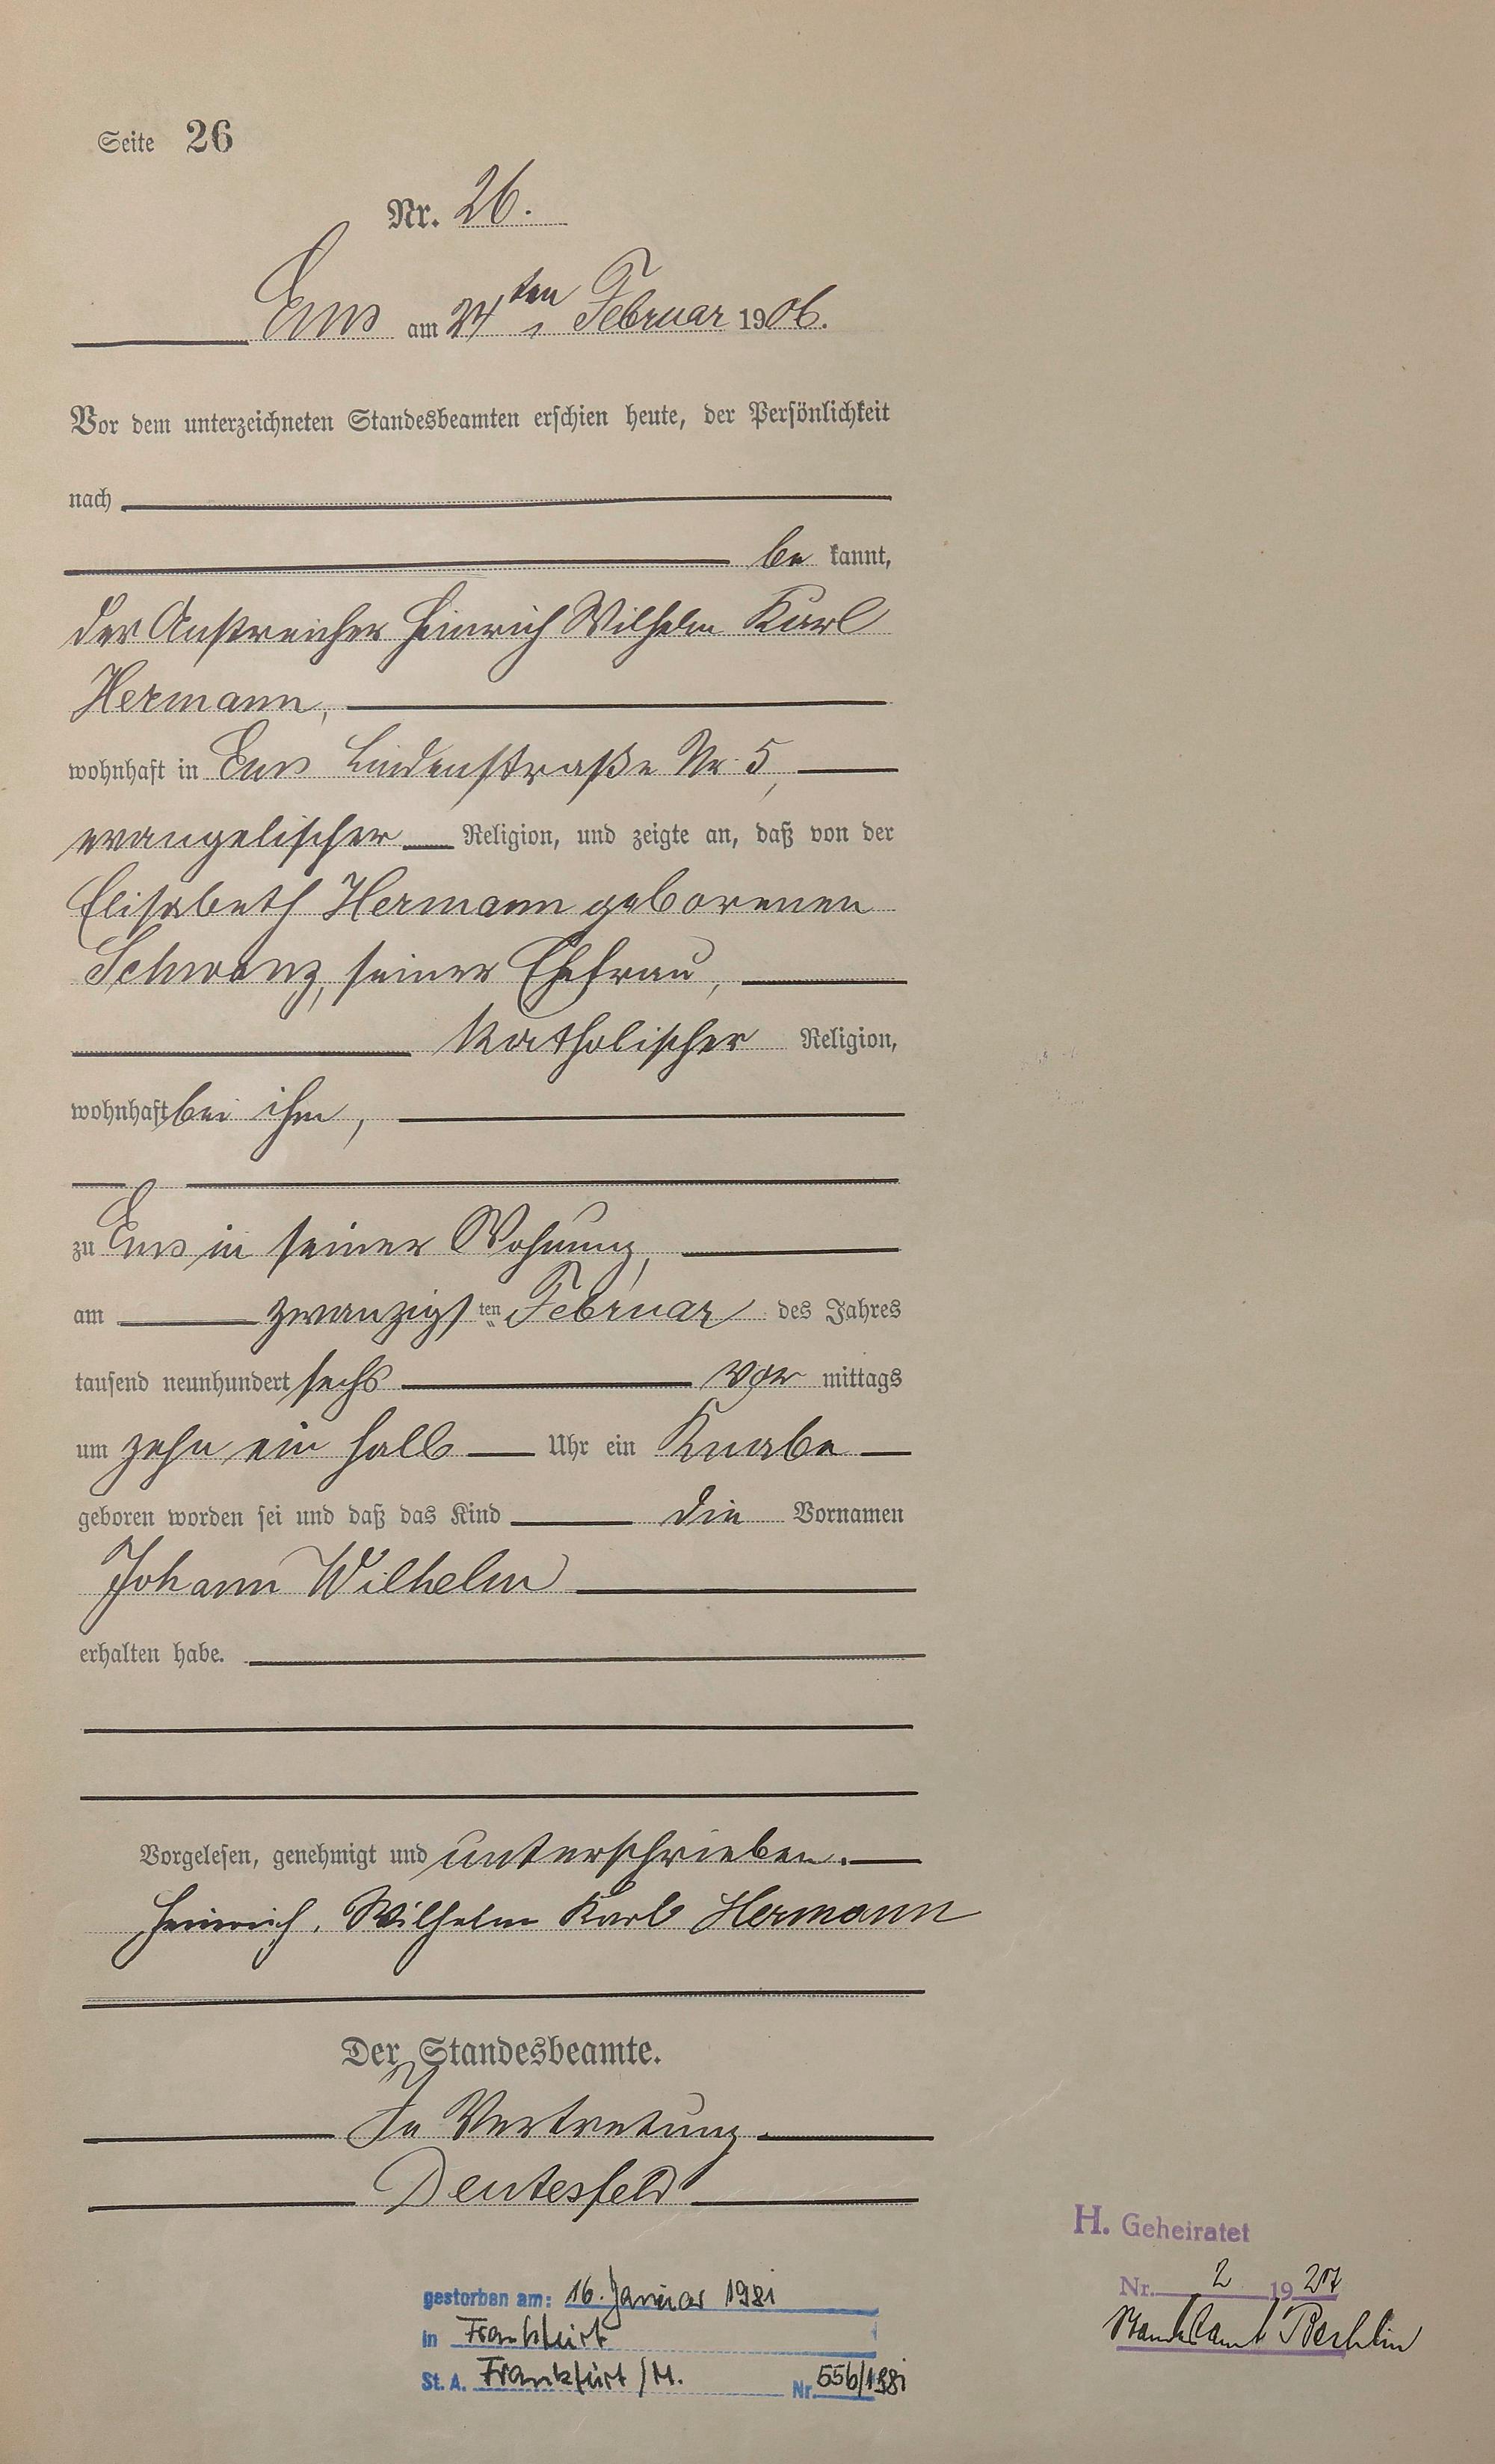 Seite 26
Nr. 26.
Ems am 24ten Februar 1906.
Vor dem unterzeichneten Standesbeamten erschien heute, der Persönlichkeit
nach
be kannt,
der Anstreicher Heinrich Wilhelm Karl
Hermann,
wohnhaft in Ems Lindenstraße Nr. 5,
evangelischer Religion, und zeigte an, daß von der
Elisabeth Hermann geborenen
Schwanz, seiner Ehefrau,
katholischer Religion,
wohnhaft bei ihm,
zu Ems in seiner Wohnung,
am zwanzigsten Februar des Jahres
tausend neunhundert sechs vor mittags
um zehn ein halb Uhr ein Knabe
geboren worden sei und daß das Kind die Vornamen
Johann Wilhelm
erhalten habe.
Vorgelesen, genehmigt und unterschrieben.
Heinrich, Wilhelm Karl Hermann
Der Standesbeamte.
In Vertretung.
Deutesfeld
H. Geheiratet
Nr. 2 1927
Standesamt
gestorben am: 16. Januar 1981
in Frankfurt
St. A. Frankfurt/M. Nr. 556/1981